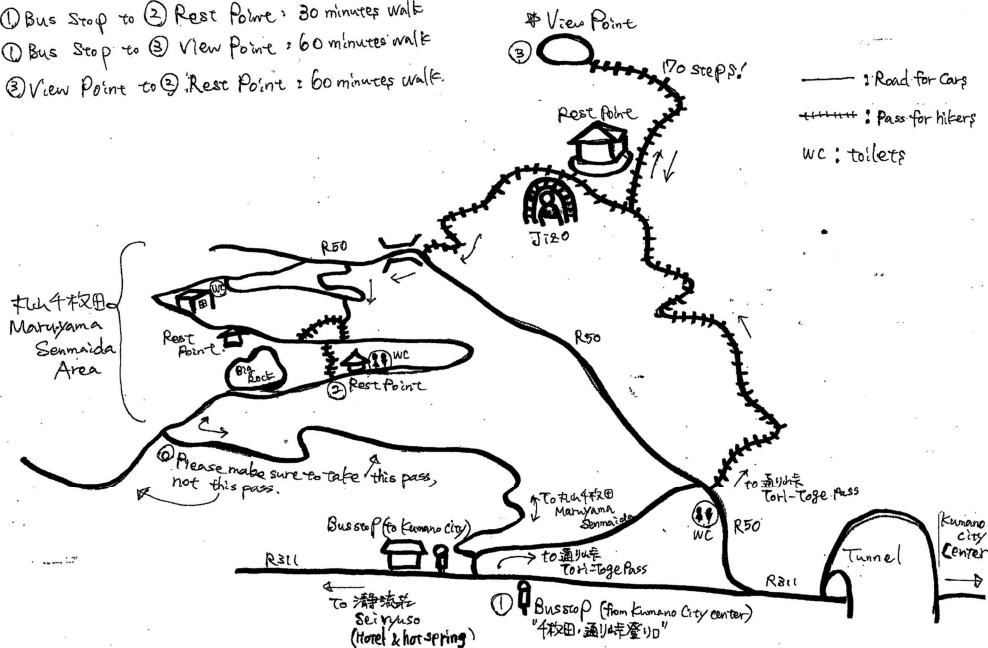 ① Bus Stop to ② Rest Point : 30 minutes walk
① Bus Stop to ③ View Point : 60 minutes walk
③ View Point to ② Rest Point : 60 minutes walk.
* View Point
③
170 steps!
: Road for cars
: Pass for hikers
WC : toilets
Rest Point
Jizo
R50
丸山千枚田
Maruyama
Senmaida
Area
WC
Rest
Point
Big
Rock
WC
② Rest Point
R50
⓪ Please make sure to take this pass,
not this pass.
to 通り峠
Tori-Toge Pass
To 丸山千枚田
Maruyama
Senmaida
WC
R50
Bus stop (to Kumano city)
to 通り峠
Tori-Toge Pass
R311
R311
Tunnel
Kumano
city
Center
To 瀞流荘
Seiryuso
(Hotel & hot spring)
① Bus stop (from Kumano City center)
"千枚田・通り峠登り口"